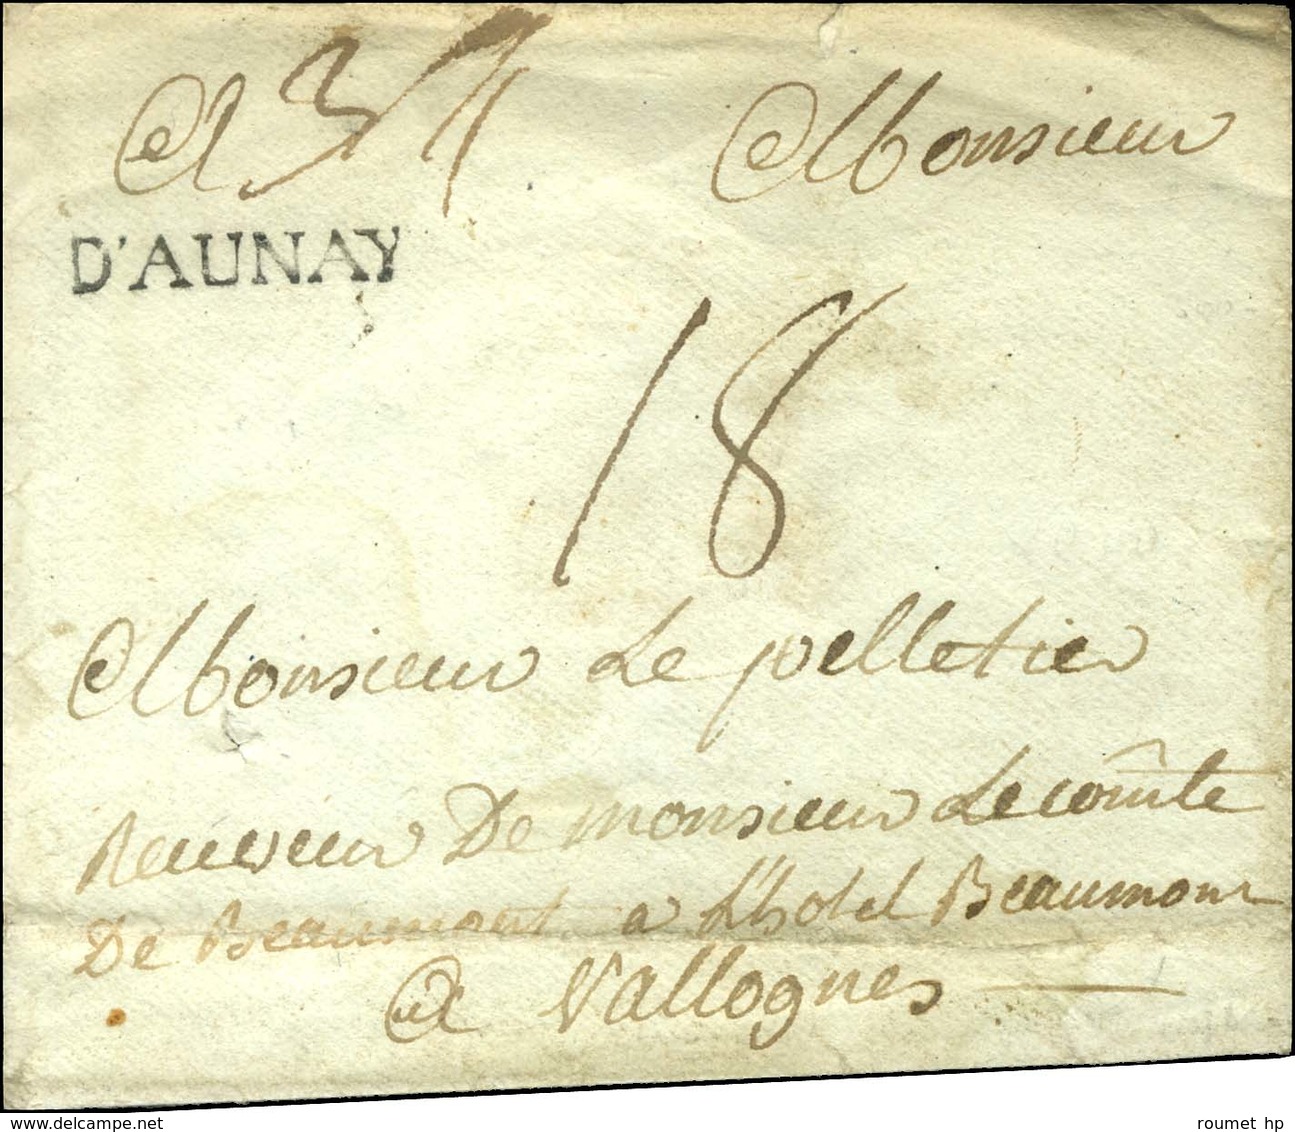 A 34 Monsieur
D'AUNAY
18
Monsieur Le pelletier
Receveur De monsieur Lecomte
De Beaumont a L'hotel Beaumont
A Vallognes
www.delcampe.net
roumet hp